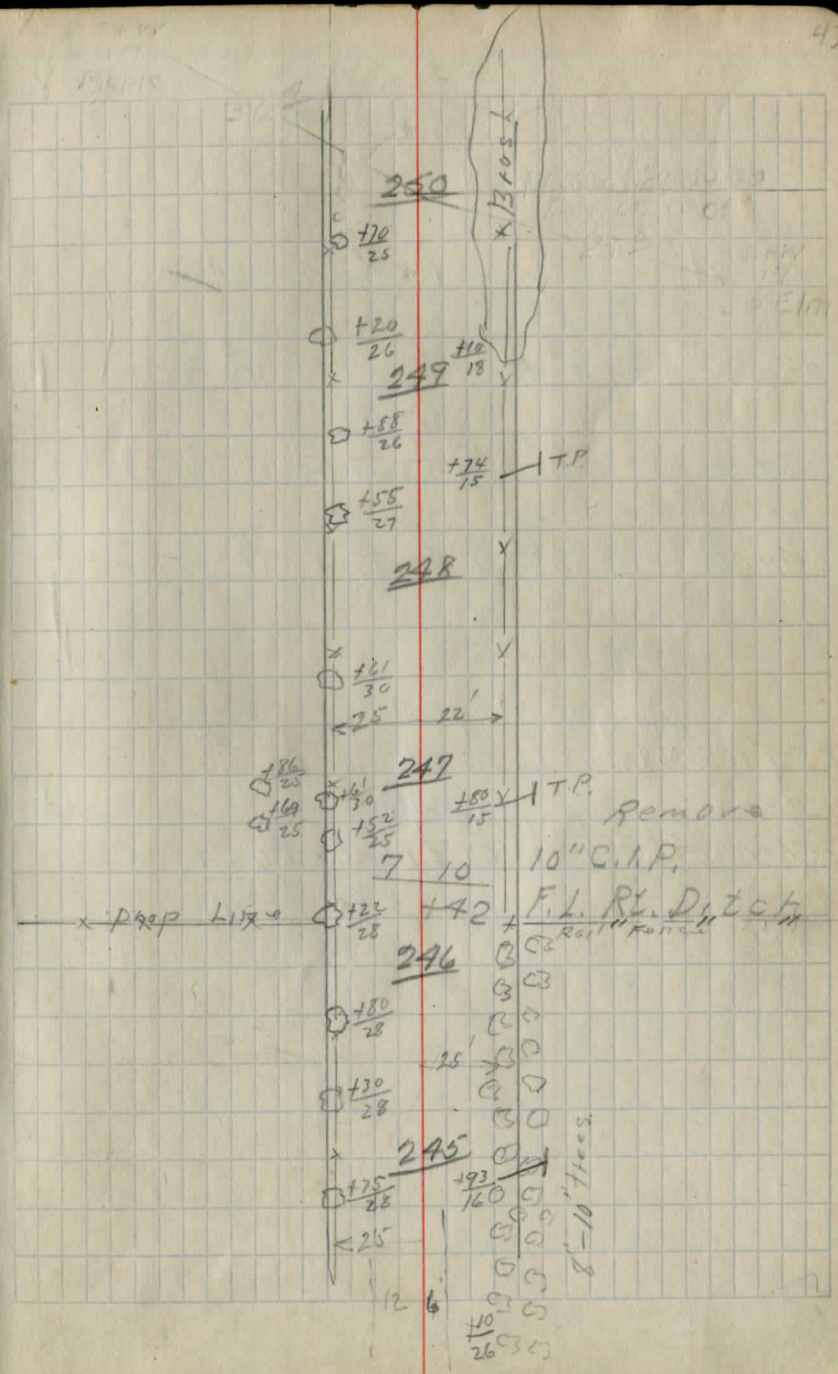 250
+70
25
+20
26
Brush
+10
18
249
+88
26
+74
15
T.P.
+55
27
248
+61
30
25 22'
247
+86
25
+61
30
+80
15
T.P.
+69
25
+52
25
Remove
7 10
10" C.I.P.
Prop Line
+22
28
+42
F.L. Rt. Ditch
Rail Fence
246
+80
28
25'
+30
28
245
+93
16
+75
28
8"-10" trees
25
12 6
+10
26
Elm